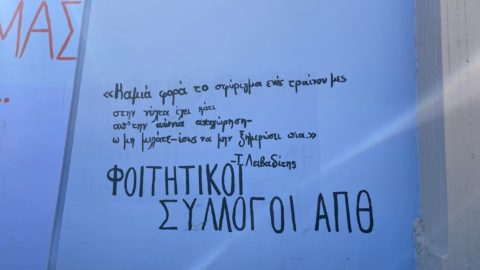 ΜΑΣ
...
«Καμιά φορά το σφύριγμα ενός τραίνου μες
στην νύχτα έχει κάτι
απ' την αιώνια αποχώρηση-
ω μη μιλάτε-ίσως να μην ξημερώσει πια.»
-Τ. Λειβαδίτης
ΦΟΙΤΗΤΙΚΟΙ
ΣΥΛΛΟΓΟΙ ΑΠΘ